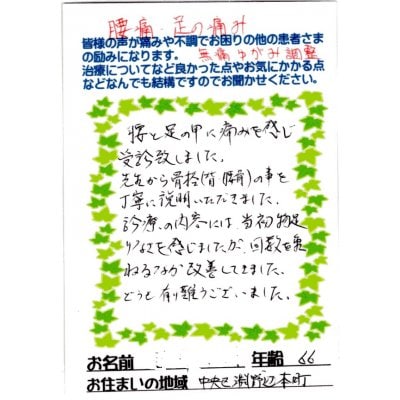 腰痛・足の痛み
皆様の声が痛みや不調でお困りの他の患者さま
の励みになります。 無痛ゆがみ調整
治療についてなど良かった点やお気にかかる点
などなんでも結構ですのでお聞かせください。
腰と足の甲に痛みを感じ
受診致しました。
先生から骨格(背腰骨)の事を
丁寧に説明いただきました。
診療の内容には、当初物足
りなさを感じましたが、回数を重
ねるうちに改善してきました。
どうも有り難うございました。
お名前 年齢 66
お住まいの地域 中央区淵野辺本町